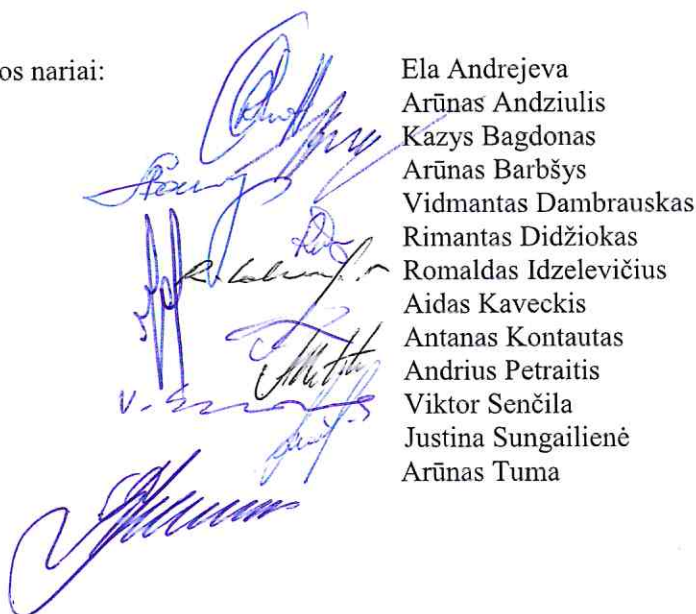 os nariai:
Ela Andrejeva
Arūnas Andziulis
Kazys Bagdonas
Arūnas Barbšys
Vidmantas Dambrauskas
Rimantas Didžiokas
Romaldas Idzelevičius
Aidas Kaveckis
Antanas Kontautas
Andrius Petraitis
Viktor Senčila
Justina Sungailienė
Arūnas Tuma